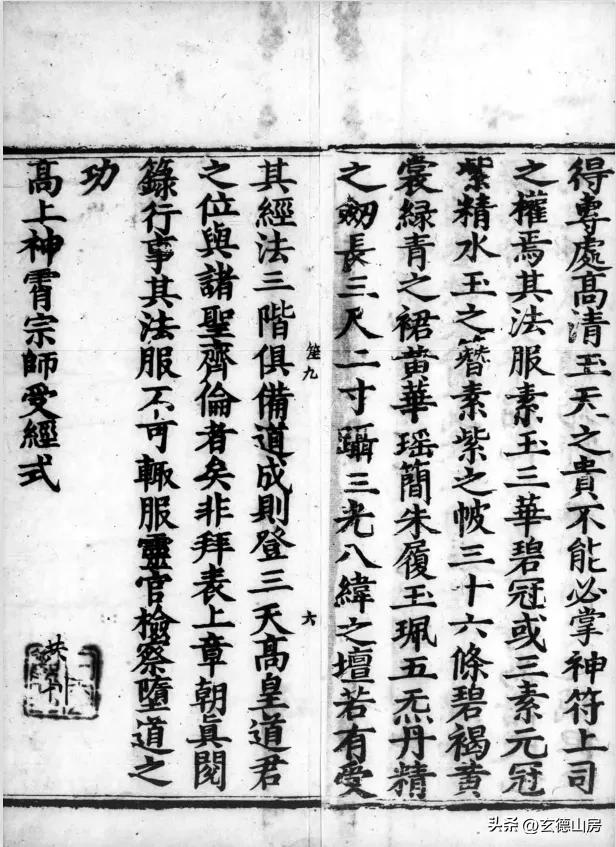 得專處高清玉天之貴不能必掌神符上司
之權焉其法服素玉三華碧冠或三素元冠
紫精水玉之簪素紫之帔三十六條碧褐黄
裳緑青之裙黄華瑶簡朱履玉珮五炁丹精
之劒長三尺二寸躡三光八緯之壇若有受
笙九
六
其經法三階俱備道成則登三天高皇道君
之位與諸聖齊倫者矣非拜表上章朝真閲
籙行事其法服不可輙服靈官檢察墮道之
功
高上神霄宗師受經式
头条 @玄德山房